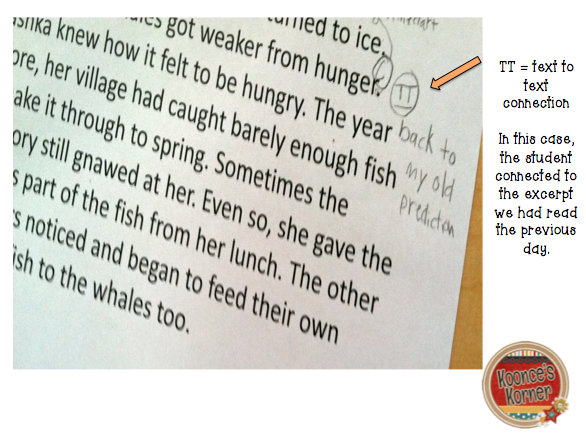 turned to ice.
got weaker from hunger.
knew how it felt to be hungry. The year
her village had caught barely enough fish
ake it through to spring. Sometimes the
ory still gnawed at her. Even so, she gave the
s part of the fish from her lunch. The other
s noticed and began to feed their own
ish to the whales too.
TT
back to
my old
prediction
TT = text to
text
connection
In this case,
the student
connected to
the excerpt
we had read
the previous
day.
Koonce's
Korner